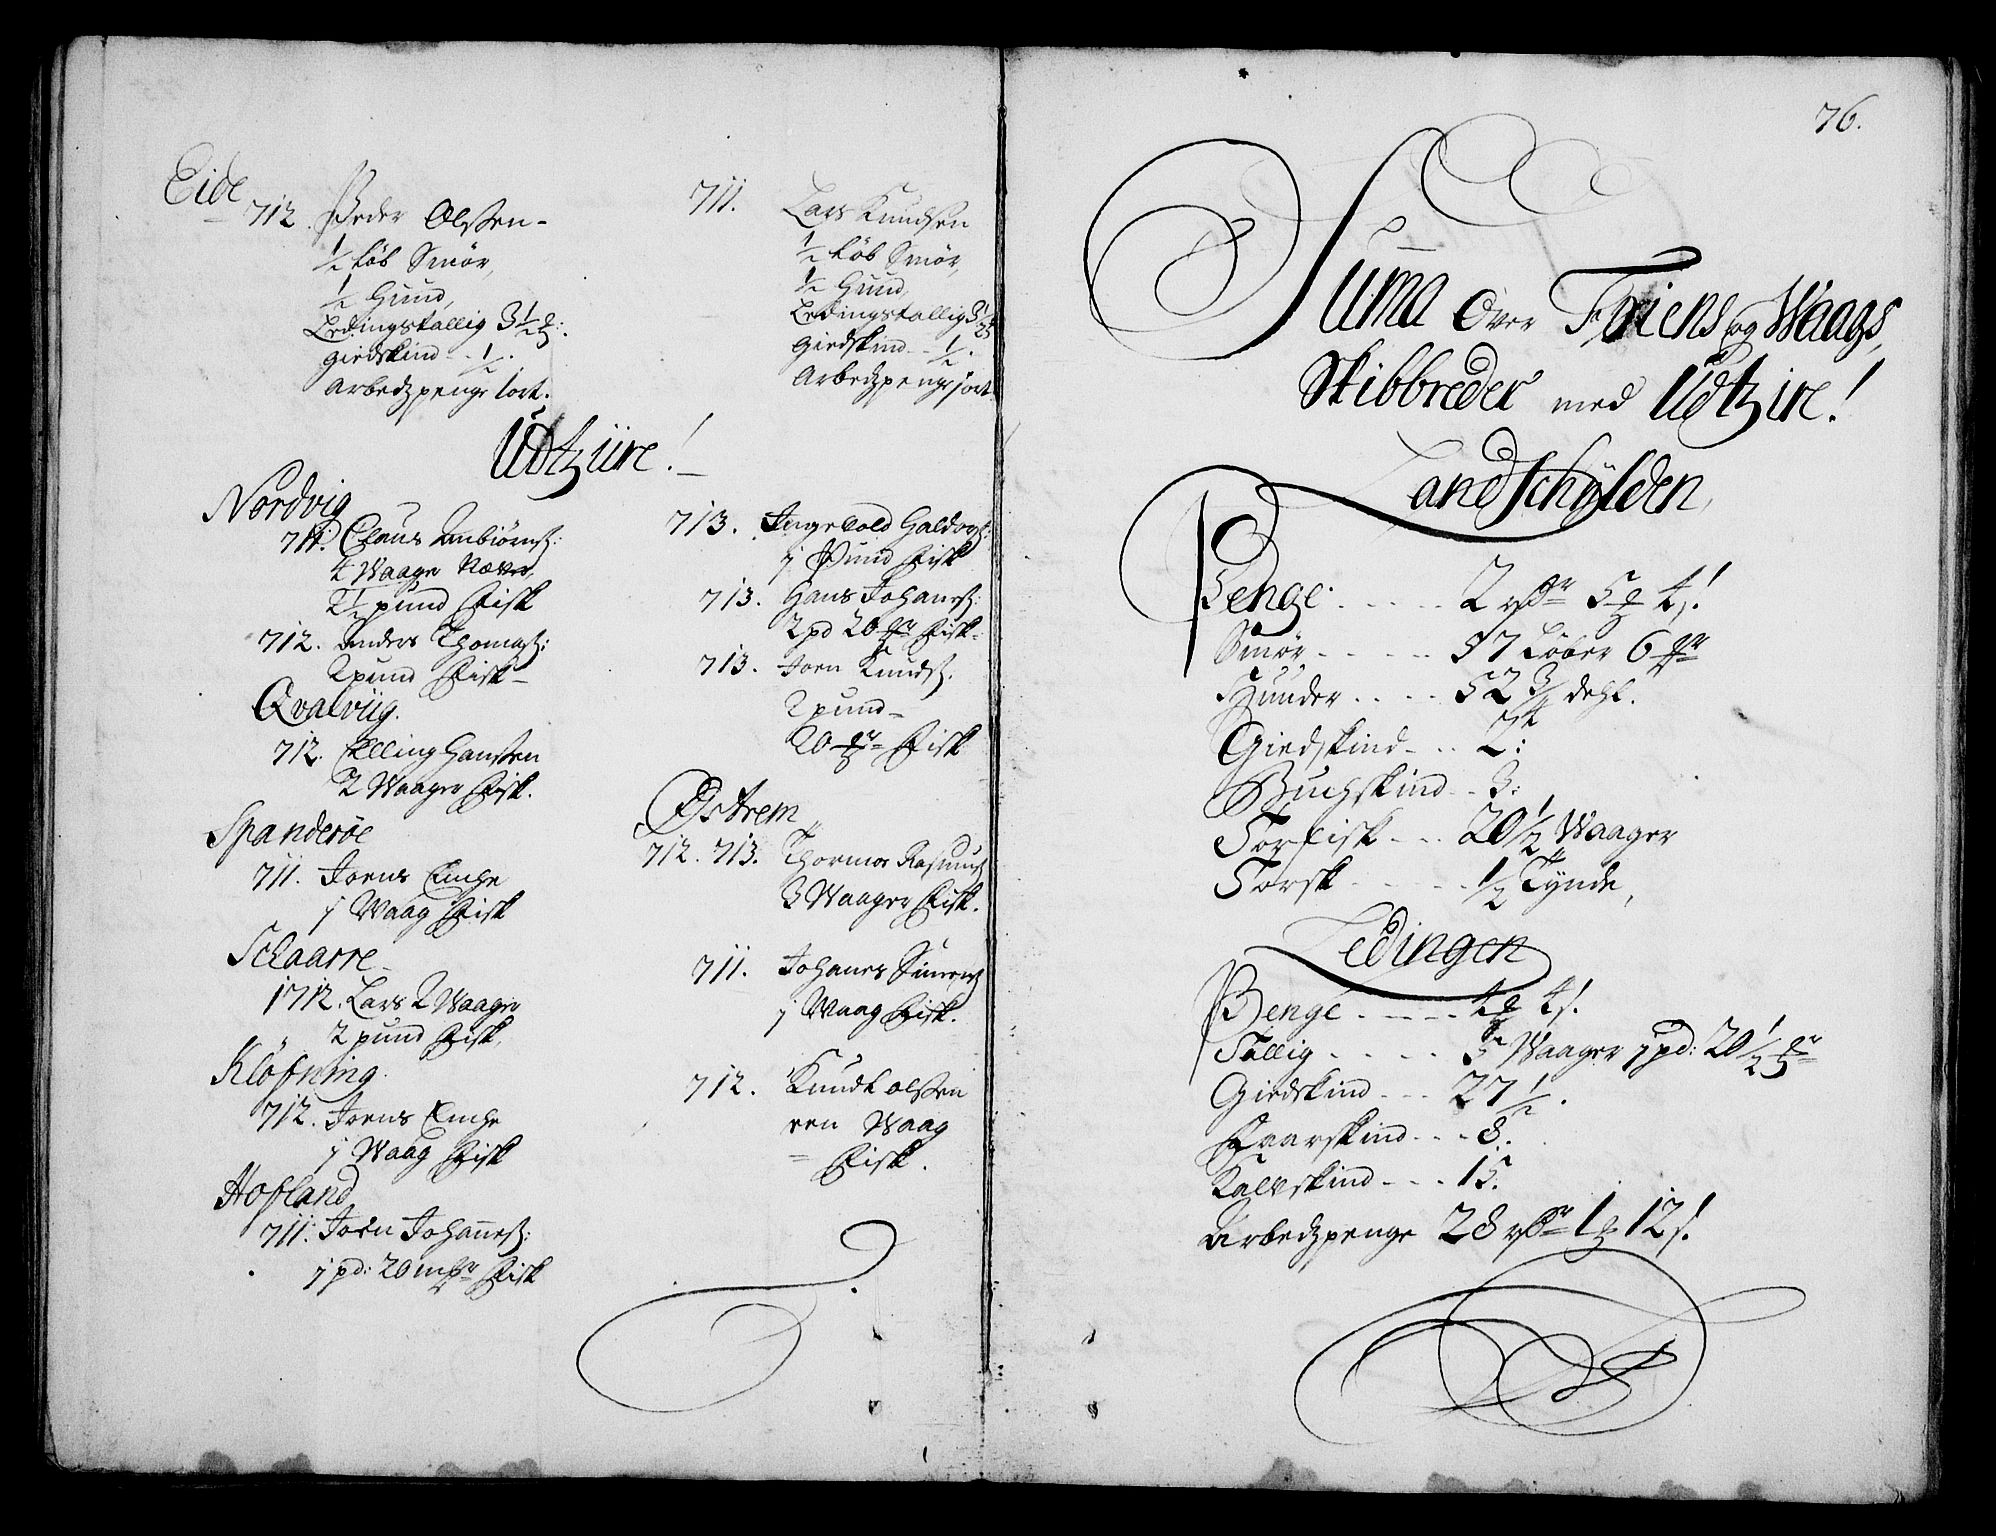 Eide
712. Peder Olssen -
1/2 løb Smør,
1/2 Huud,
Ledingstallig 3 1/2
giedskind - - 1/2.
Arbedzpenge 1ort.
711. Lars Knudsen
1/2 løb Smør,
1/2 Huud,
Ledingstallig 3 1/2
giedskind - - 1/2.
Arbedzpenge 1ort
Udtziire!
Nordvig
711. Claus
4 Waager
2 1/2 pund Fisk
712. Anders Thomas:
2 pund Fisk -
Qvalviig.
712. Elling Hanssen
2 Waager Fisk.
Spanderøe
711. Joens
j Waag Fisk
Sclaarre
1712. Lars 2 Waager
2 pund Fisk,
Kløfning
712. Joens
j Waag Fisk
Hofland
711. Joen Johanes:
j pd: 20 Fisk
713.
j Pund Fisk
713. Hans Johanes:
2 pd 20 Fisk -
713. Joen Knuds.
2 pund -
20 Fisk
Østrem
712. 713. Thormoe Rasmus
3 Waager Fisk.
711. Johanes Simens
j Waag Fisk.
712. Knudt olssen
een Waag
Fisk.
76.
Suma Over Føiens og Waags
Skibbreder med Udtzire!
Landschÿlden,
Penge - - - - 2 rdr 5 4 s!
Smør - - - - 37 Løber 6
Huuder - - - - 52 3/4 dehl.
Giedskind - - 2:
Buchskind - - 3:
Torfisk - - - 20 1/2 Waager
Torsk - - - - 1/2 Tÿnde,
Ledingen
Penge - - - - 4 4 s!
Tallig - - - - 5 Waager j pd: 20 1/2
Giedskind - - - 27 1/2.
Faarskind - - - 8.
Kalvskind - - - 15.
Arbedzpenge 28 rdr 1 12 s!